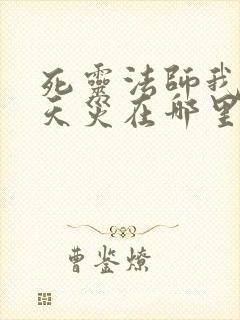 死靈法師我
天災在哪里
曹鉴燎